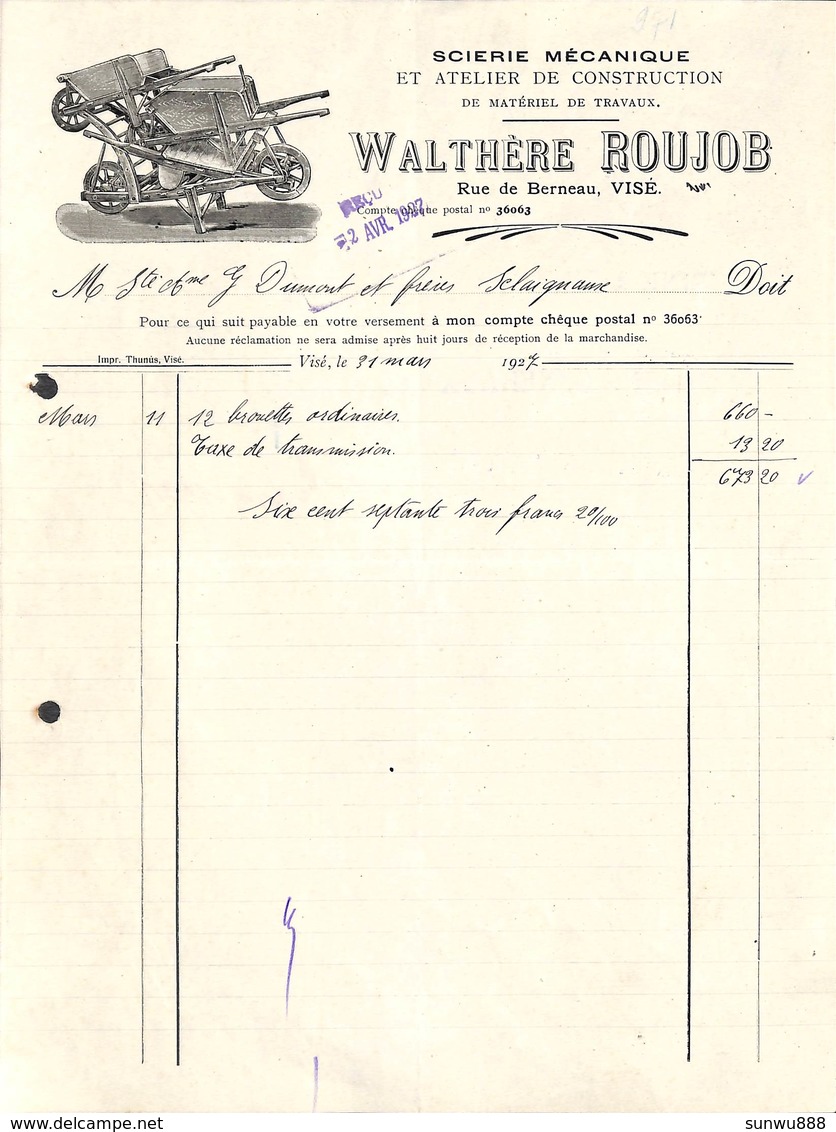 971
SCIERIE MÉCANIQUE
ET ATELIER DE CONSTRUCTION
DE MATÉRIEL DE TRAVAUX.
WALTHÈRE ROUJOB
Rue de Berneau, VISÉ.
Compte chèque postal nº 36063
REÇU
2 AVR. 1927
M Sté Ame G Dumont et frères Sclaigneaux Doit
Pour ce qui suit payable en votre versement à mon compte chêque postal nº 36063
Aucune réclamation ne sera admise après huit jours de réception de la marchandise.
Impr. Thunús, Visé. Visé, le 31 mars 1927
Mars 11 12 brouettes ordinaires. 660 -
Taxe de transmission. 13 20
673 20
Six cent septante trois francs 20/100
sunwu888